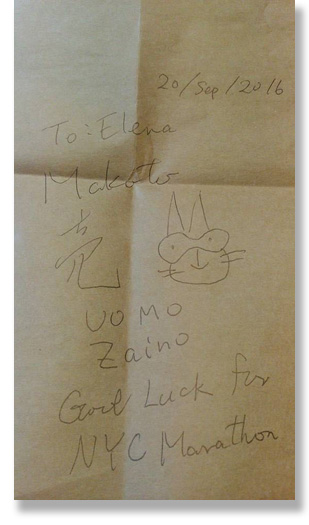 20/Sep/2016
To: Elena
Makoto
UOMO
Zaino
Good Luck for
NYC Marathon